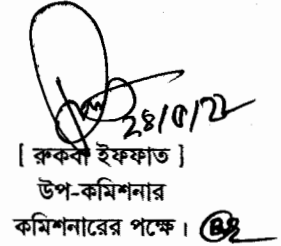 ২৪/৫/২২
[ রুকবা ইফফাত ]
উপ-কমিশনার
কমিশনারের পক্ষে।